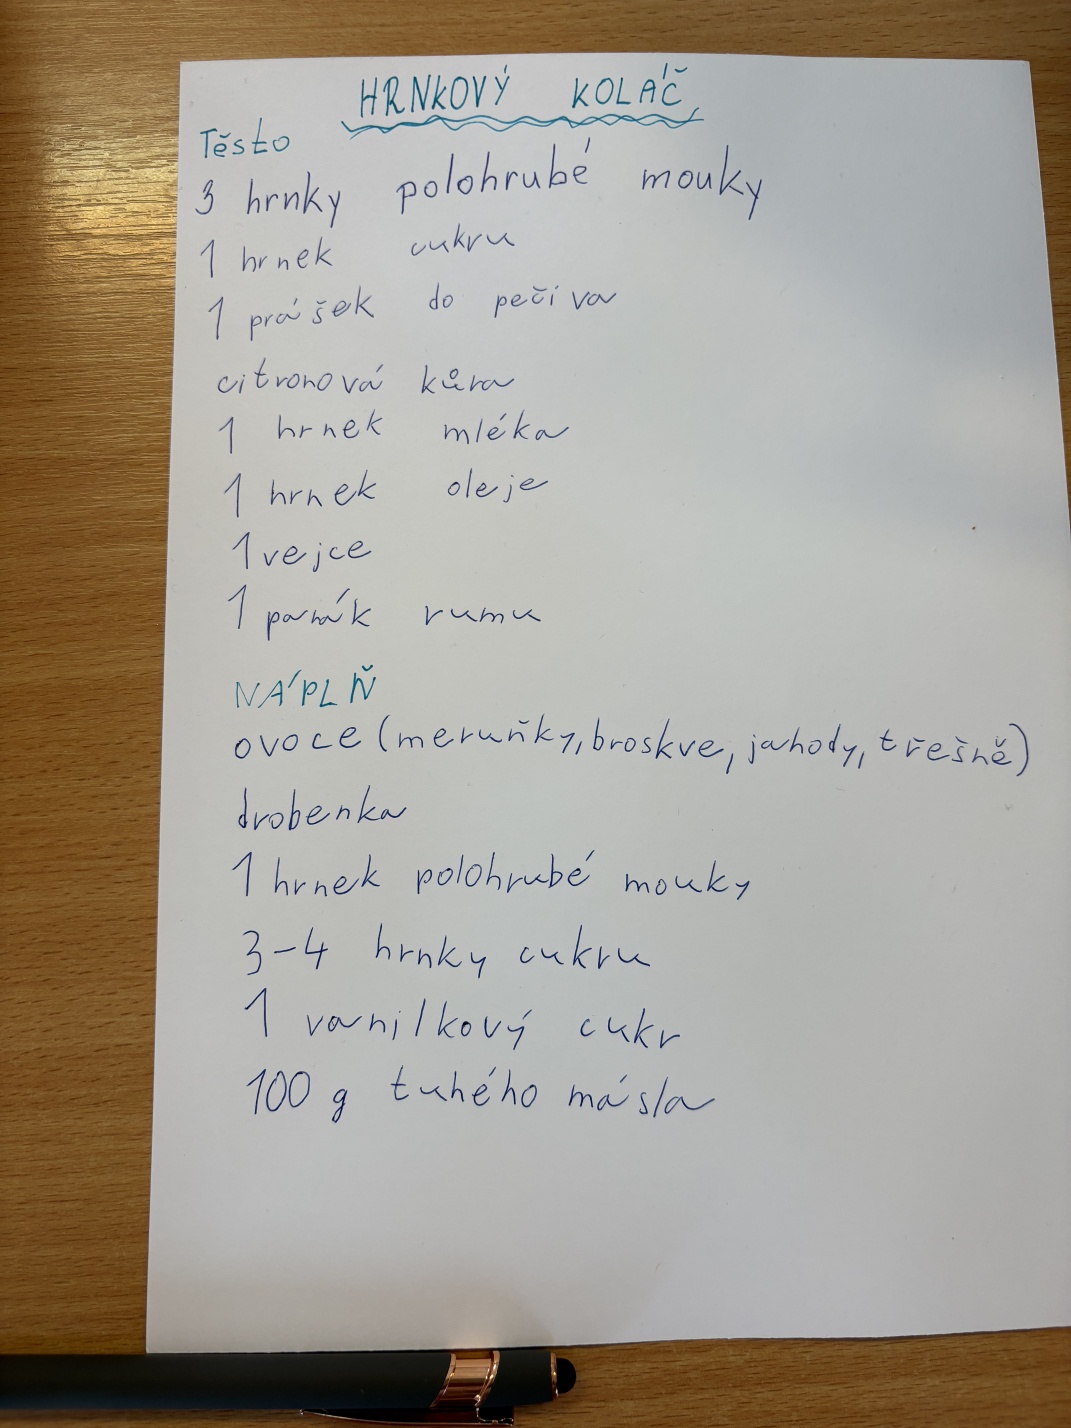 HRNKOVÝ KOLÁČ
Těsto
3 hrnky polohrubé mouky
1 hrnek cukru
1 prášek do pečiva
citronová kůra
1 hrnek mléka
1 hrnek oleje
1 vejce
1 panák rumu
NÁPLŇ
ovoce (meruňky, broskve, jahody, třešně)
drobenka
1 hrnek polohrubé mouky
3-4 hrnky cukru
1 vanilkový cukr
100 g tuhého másla